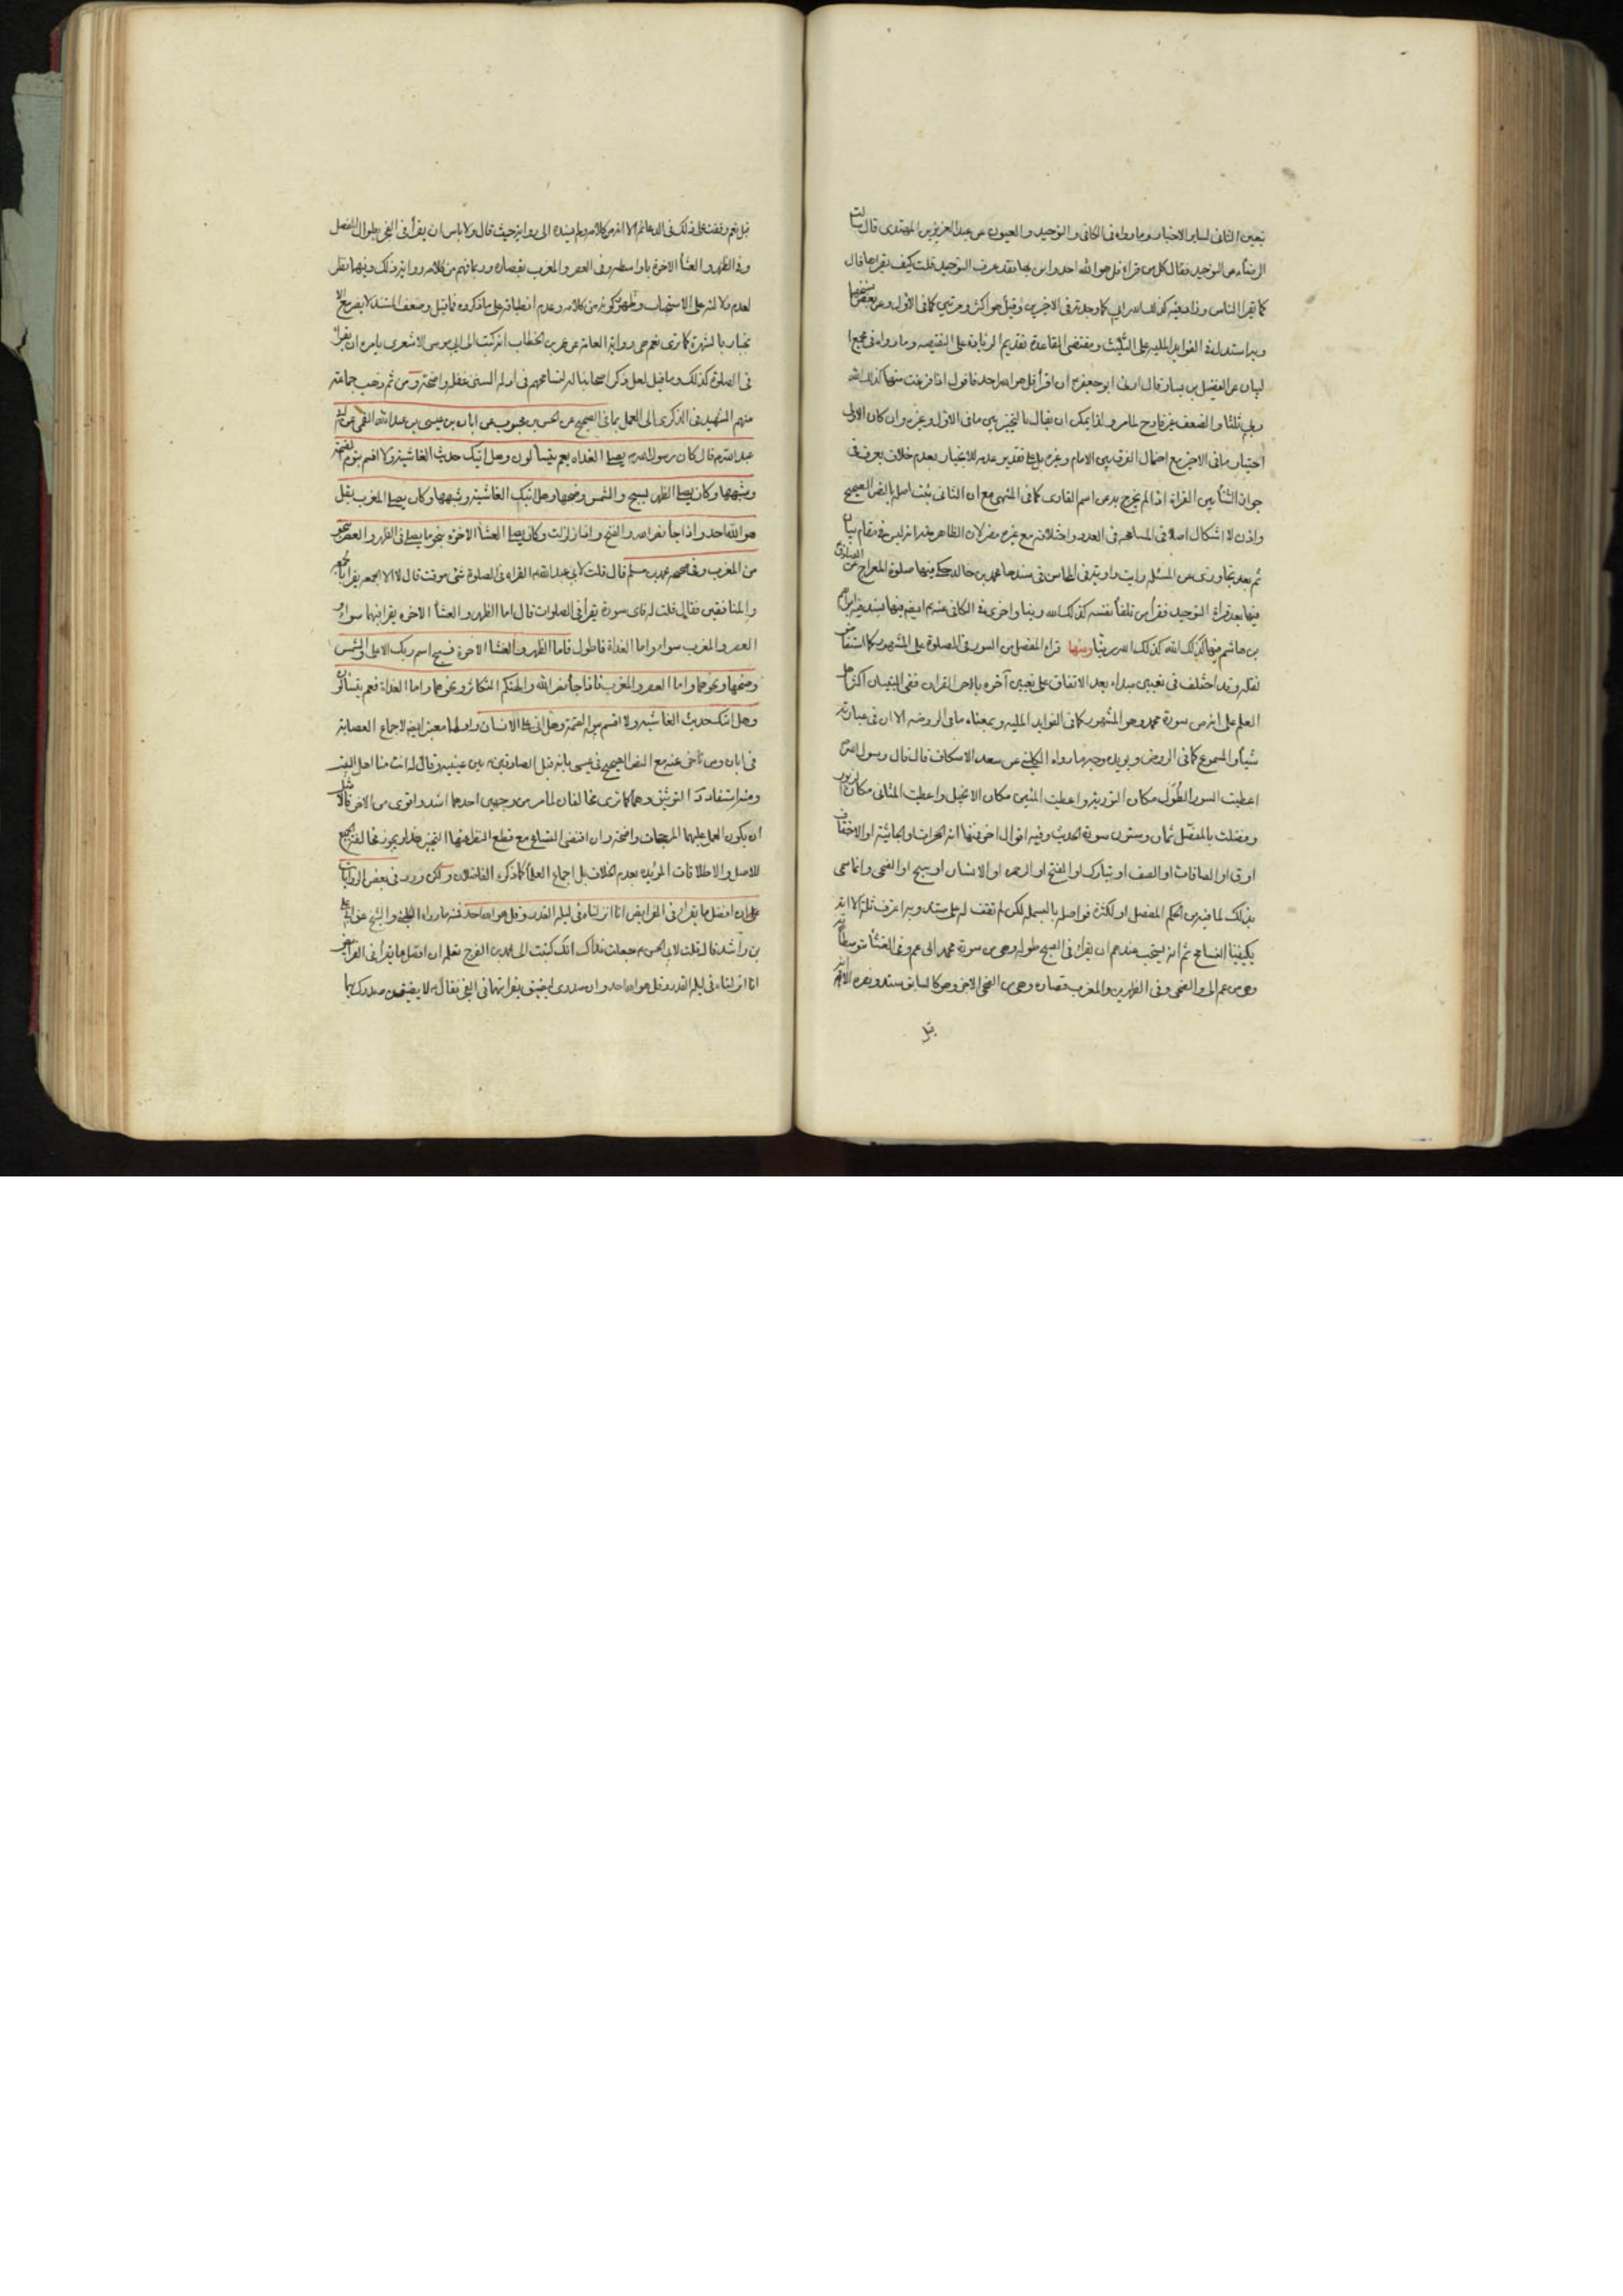 تعيين الثانى لساير الاخبار وما رواه فى الكافى و التوحيد و العيون عن عبد العزيز بن المهتدى قال سالت
الرضا ع عن التوحيد فقال كل من قراء قل هو الله احد وامن بها فقد عرف التوحيد قلت كيف نقراها قال
كما يقرا الناس وزاد فيه كذلك الله ربى كما وجدته فى الاخرين وقيل هو اكثر ومرتين كما فى الاول وعن بعض نسخها
وبه استدل فى الفوايد المليه على التثليث ومقتضى القاعدة تقديم الزيادة على النقيصه وما رواه فى مجمع ا
لبيان عن الفضيل بن يسار قال امرنى ابو جعفر ع ان اقرا قل هو الله احد فاقول اذا فرغت منها كذلك الله
ربى ثلثا و الضعف غير قادح لما مر ولذا يمكن ان يقال بالتخيير بين ما فى الاول وغيره وان كان الاولى
اختيار ما فى الاخير مع احتمال الفرق بين الامام وغيره بل على تقدير عدمه للانجبار بعدم خلاف يعرف فى
جواز الثنا بين القراءة اذا لم يخرج به عن اسم القارى كما فى المنتهى مع ان الثانى ثبت اصله بالنص الصحيح
واذن لا اشكال اصلا فى المسامحه فى العدد واختلافه مع غيره مضر لان الظاهر منه انه ليس فى مقام بيان
ثم بعد تجاوزى عن المسئله رايت رواية فى المحاسن فى سندها محمد بن خالد حكى فيها صلوة المعراج عن الصادق
فيها بعد قراءة التوحيد فقرا من تلقاء نفسه كذلك الله ربنا واخرى فى الكافى عنه ع ايضا فيها بسند فيه ابراهيم
بن هاشم فيها كذلك الله كذلك الله ربنا ومنها قراءة المفصل من السور فى الصلوة على المشهور كما استفاض
نقله وقد اختلف فى تعيين مبداه بعد الاتفاق على تعيين آخره باخر القران ففى التبيان اكثر اهل
العلم على انه من سورة محمد وهو المشهور كما فى الفوايد المليه وبمعناه ما فى الروضه الا ان فى عبارته
شيئا والمسموع كما فى الروض ويؤيده وجبرها رواه الكلينى عن سعد الاسكاف قال قال رسول الله ص
اعطيت السور الطول مكان التورية واعطيت المئين مكان الانجيل واعطيت المثانى مكان الزبور
وفضلت بالمفصل ثمان وستون سورة الحديث وفيه اقوال اخر منها انه الحجرات او الجاثية او الاحقاف
او ق او الصافات او الصف او تبارك او الفتح او الرحمن او الانسان او سبح او الضحى وانما سمى
بذلك لما فيه من الحكم المفصل او لكثرة فواصله بالبسمله لكن لم نقف له على مستند وبه اعترف ثلة الا انه
يكفينا التسامح ثم انه يستحب عندهم ان يقراء فى الصبح طواله وهى من سورة محمد الى عم وفى العشا متوسطاته
وهى من عم الى والضحى وفى الظهرين والمغرب قصاره وهى من الضحى الاخر وهو كالسابق مستندا وغيره الا انه
قيل
قيل نعم وقفت على ذلك فى الدعائم الا انه من كلامه ولم يسنده الى رواية حيث قال ولا باس ان يقرأ فى الفجر بطوال المفصل
وفى الظهر و العشأ الاخرة باواسطه وفى العصر والمغرب بقصاره وربما فهم من كلامه رواية ذلك وفيها نظر
لعدم دلالته على الاستحباب وظهور كونه من كلامه وعدم انطباقه على ما ذكروه فما قيل وضعف السند لا يضر مع الا
نجبار بالشهرة كما ترى نعم هى رواية العامة عن عمر بن الخطاب انه كتب الى ابى موسى الاشعرى يامره ان يقرا
فى الصلوة كذلك وما قيل لعل ذكر اصحابنا له لتسامحهم فى ادلة السنن غفلة واضحة ومن ثم ذهب جماعة
منهم الشهيد فى الذكرى الى العمل بما فى الصحيح عن الحسن بن محبوب عن ابان بن عيسى بن عبد الله القمى عن ابى
عبد الله ع قال كان رسول الله ص يصلى الغداة بعم يتسألون وهل اتيك حديث الغاشية ولا اقسم بيوم القيمة
وشبهها وكان يصلى الظهر بسبح والشمس وضحها وهل اتيك الغاشية وشبهها وكان يصلى المغرب بقل
هو الله احد و اذا جأ نصر الله و الفتح و اذا زلزلت وكان يصلى العشأ الاخرة بنحو ما يصلى فى الظهر و العصر بنحو
من المغرب وفى صحيحه محمد بن مسلم قال قلت لابى عبد الله ع القراءه فى الصلوة شئ موقت قال لا الا الجمعه يقرا بالجمعه
والمنافقين فقال قلت له فاى سورة يقرأ فى الصلوات قال اما الظهر و العشأ الاخره يقرا فيهما سواء و
العصر والمغرب سواء واما الغداة فاطول فاما الظهر والعشاا الاخرة فسبح اسم ربك الاعلى والشمس
وضحها ونحوهما واما العصر والمغرب فاذا جأ نصر الله والهيكم التكاثر ونحوهما واما الغداة فعم يتسألون
وهل اتيك حديث الغاشيه ولا اقسم بيوم القيمة وهل اتى على الانسان واولها معتبر ايضا لاجماع العصابة
فى ابان ومن تاخر عنه مع النص الصحيح فى عيسى بانه قبل الصادق ع ما بين عينيه وقال له انت منا اهل البيت
ومنه استفادة التوثيق وهما كما ترى مخالفان لما مر من وجهين احدهما اشد واقوى من الاخر فالا
ان يكون العمل عليهما المرجحات واضحة وان اقتضى التسامح مع قطع النظر عنها التخيير هذا ويجوز مخالفة الجميع
للاصل والاطلاقات المؤيده بعدم الخلاف بل اجماع العلمأ كما ذكره الفاضلان ولكن ورد فى بعض الروايات
على ان افضل ما يقرا فى الفرايض انا انزلناه فى ليلة القدر وقل هو الله احد فمنه ما رواه الكلينى و الشيخ عن ابى على
بن راشد قال قلت لابى الحسن ع جعلت فداك انك كتبت الى محمد بن الفرج تعلمه ان افضل ما يقرأ فى الفرايض
انا انزلناه فى ليلة القدر وقل هو الله احد وان صدرى ليضيق بقرائتهما فى الفجر فقال ع لا يضيقن صدرك بهما